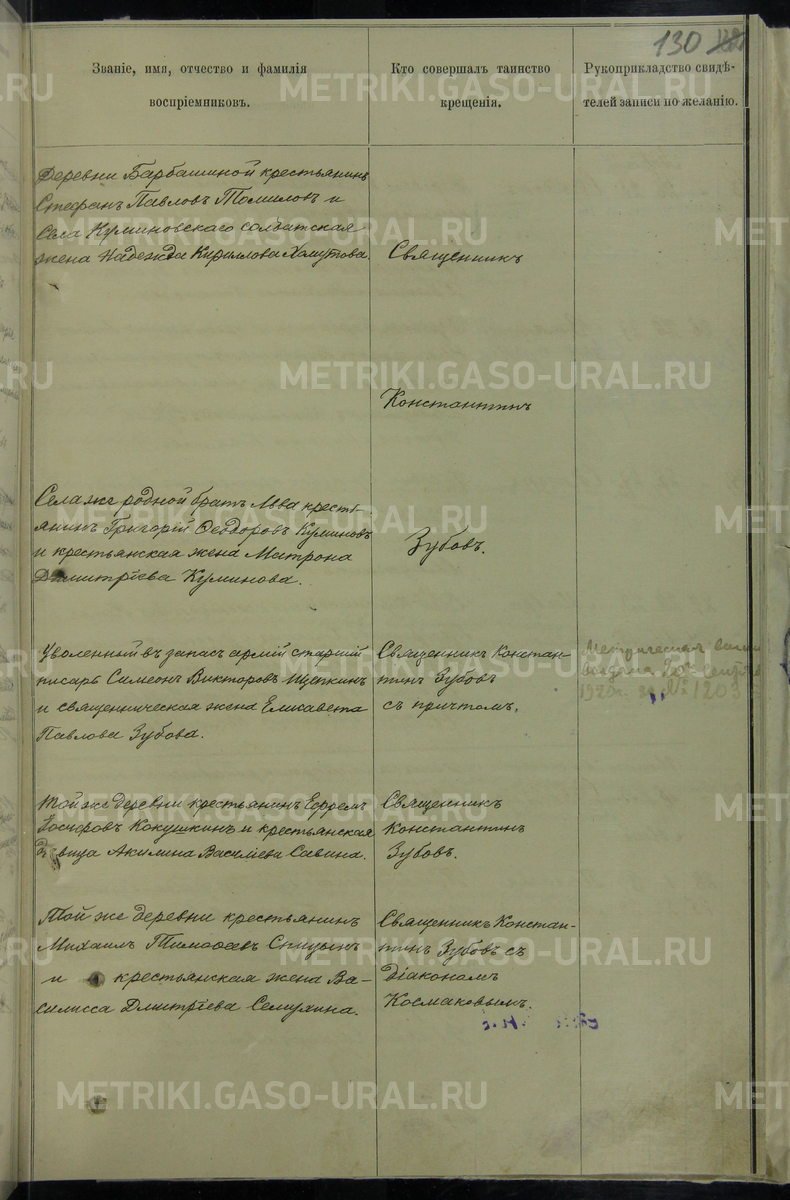 130
Званіе, имя, отчество и фамилія
воспріемниковъ.
Кто совершалъ таинство
крещенія.
Рукоприкладство свидѣ-
телей записи по желанію.
Деревни Барбашиной крестьянинъ
Стефанъ Павловъ Томиловъ и
Села Куминовскаго солдатская
жена Надежда Кириллова Хомутова.
Священникъ
Константинъ
Зубовъ.
Села же родной братъ Льва кресть-
янинъ Григорій Ѳеодоровъ Куминовъ
и крестьянская жена Матрона
Димитріева Куминова.
Уволенный въ запасъ арміи старшій
писарь Симеонъ Викторовъ Щепкинъ
и священническая жена Елисавета
Павлова Зубова.
Священникъ Констан-
тинъ Зубовъ
съ причтомъ.
Метрическая
выдана
192 г. за № 1203
Той же деревни крестьянинъ Ефремъ
Кокушкинъ и крестьянская
дѣвица Акилина Василіева Савина.
Священникъ
Константинъ
Зубовъ.
Той же деревни крестьянинъ
Михаилъ Тимофеевъ Спицынъ
и крестьянская жена Ва-
силисса Дмитріева Семухина.
Священникъ Констан-
тинъ Зубовъ съ
діакономъ
Космаковымъ.
METRIKI.GASO-URAL.RU